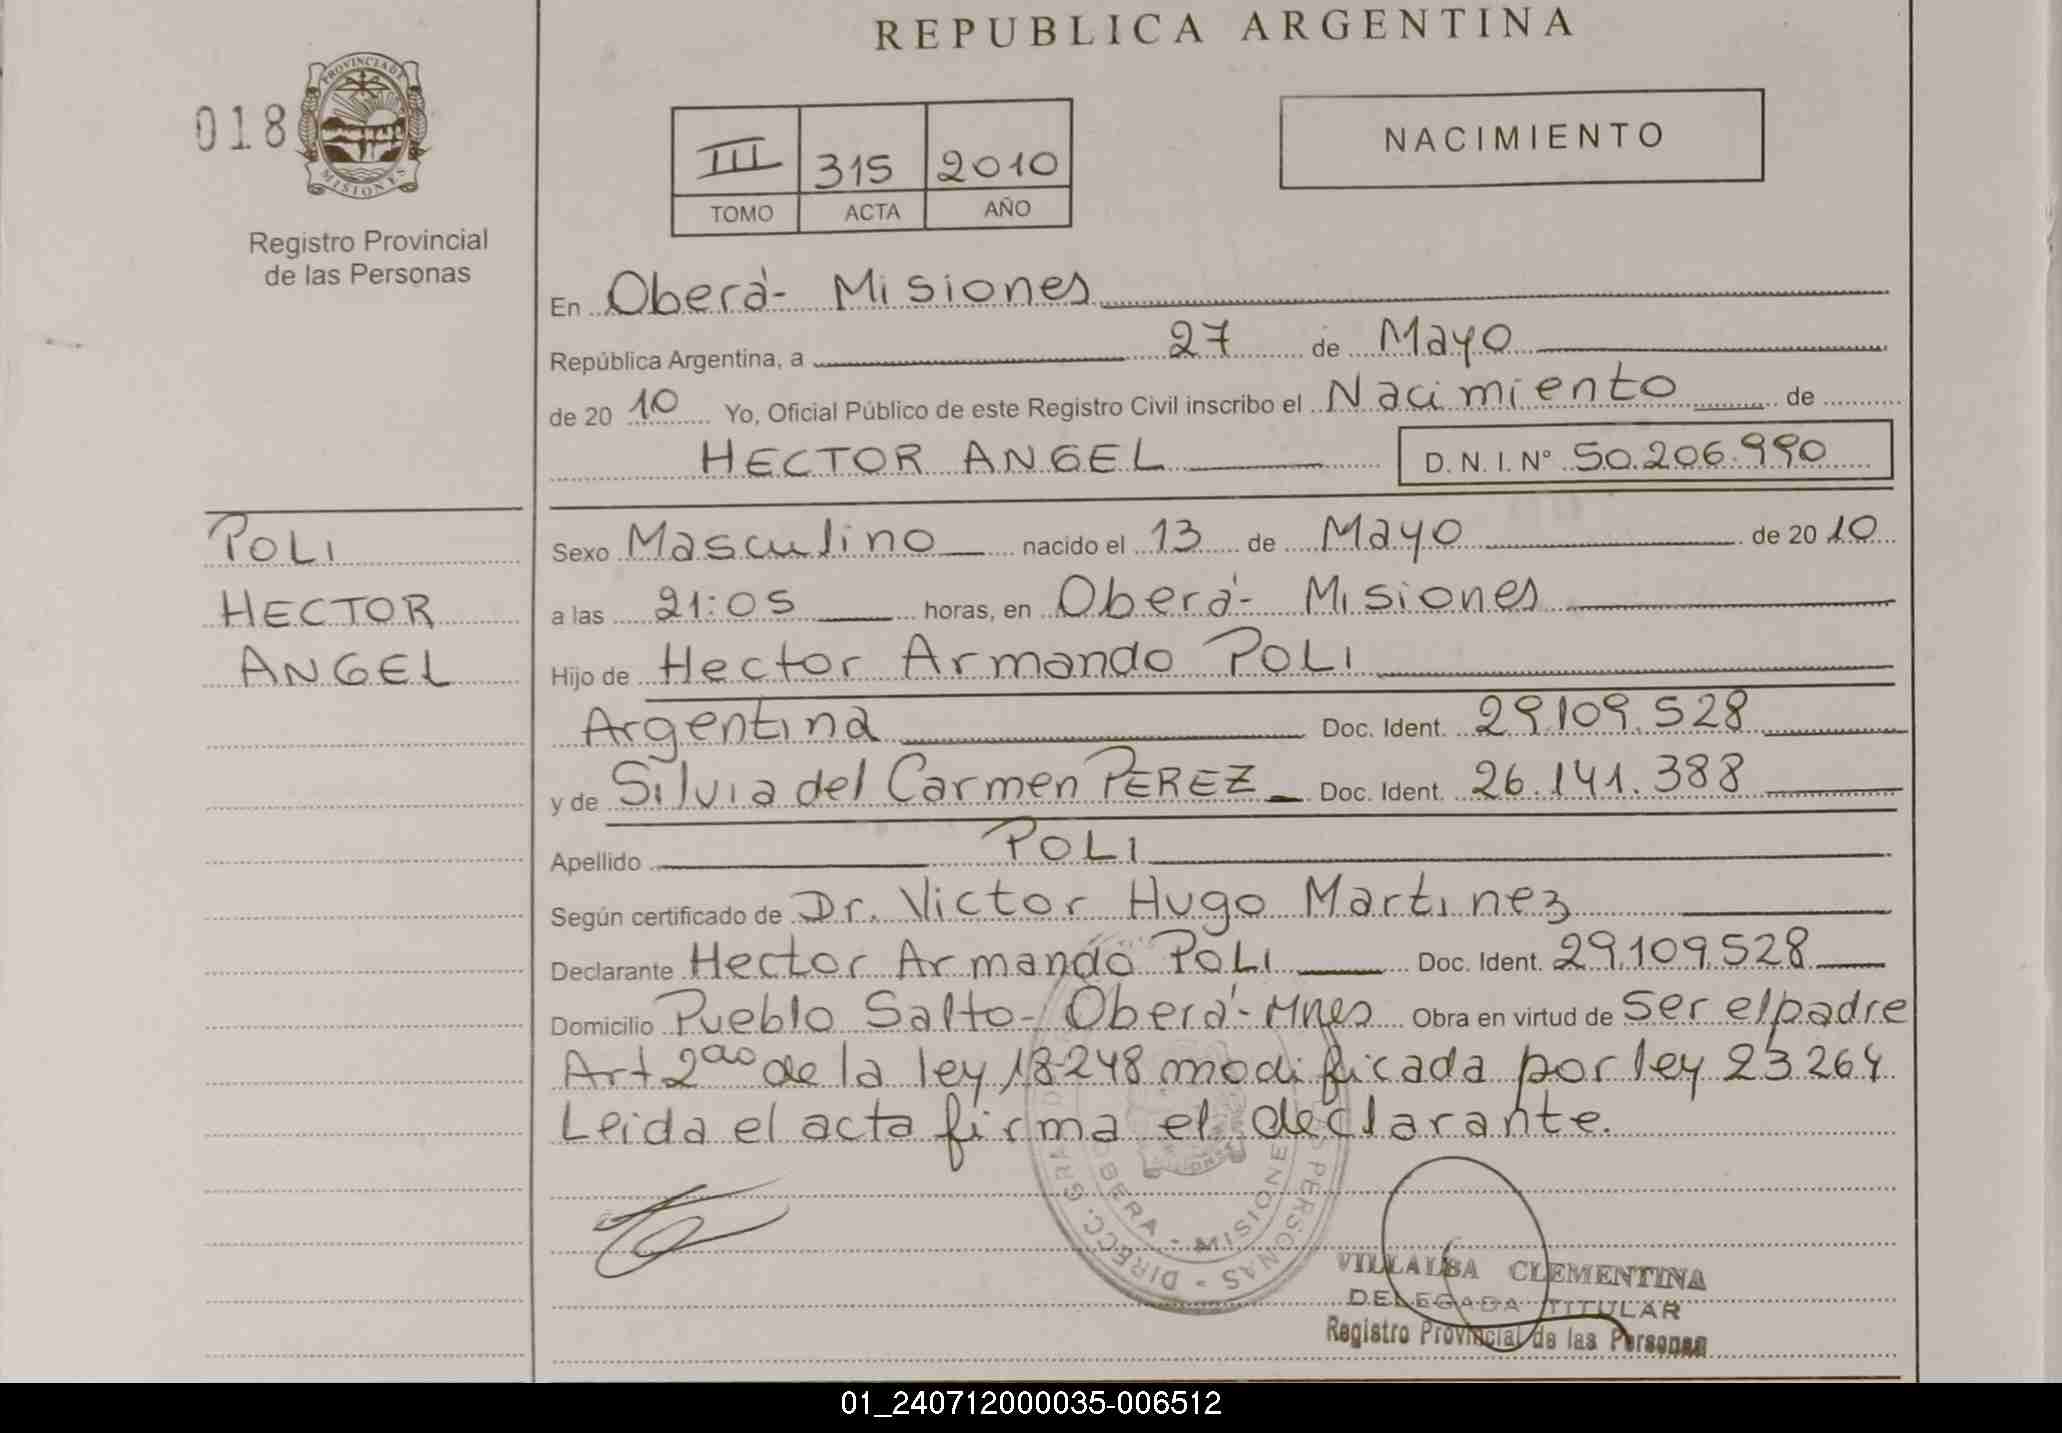 REPUBLICA ARGENTINA
018
PROVINCIA DE
MISIONES
Registro Provincial
de las Personas
III 315 2010
TOMO ACTA AÑO
NACIMIENTO
En Oberá- Misiones
República Argentina, a 27 de Mayo
de 20 10 Yo, Oficial Público de este Registro Civil inscribo el Nacimiento de
HECTOR ANGEL D.N.I. Nº 50.206.990
POLI
HECTOR
ANGEL
Sexo Masculino nacido el 13 de Mayo de 20 10
a las 21:05 horas, en Oberá- Misiones
Hijo de Hector Armando POLI
Argentina Doc. Ident. 29.109.528
y de Silvia del Carmen PEREZ Doc. Ident. 26.141.388
Apellido POLI
Según certificado de Dr. Victor Hugo Martinez
Declarante Hector Armando POLI Doc. Ident. 29.109.528
Domicilio Pueblo Salto- Oberá- Mnes Obra en virtud de ser el padre
Art 2do de la ley 18-248 modificada por ley 23264
Leida el acta firma el declarante.
OBERA - MISIONES
PERSONAS - DIRECC. GRAL
VILLALBA CLEMENTINA
DELEGADA TITULAR
Registro Provincial de las Personas
01_240712000035-006512